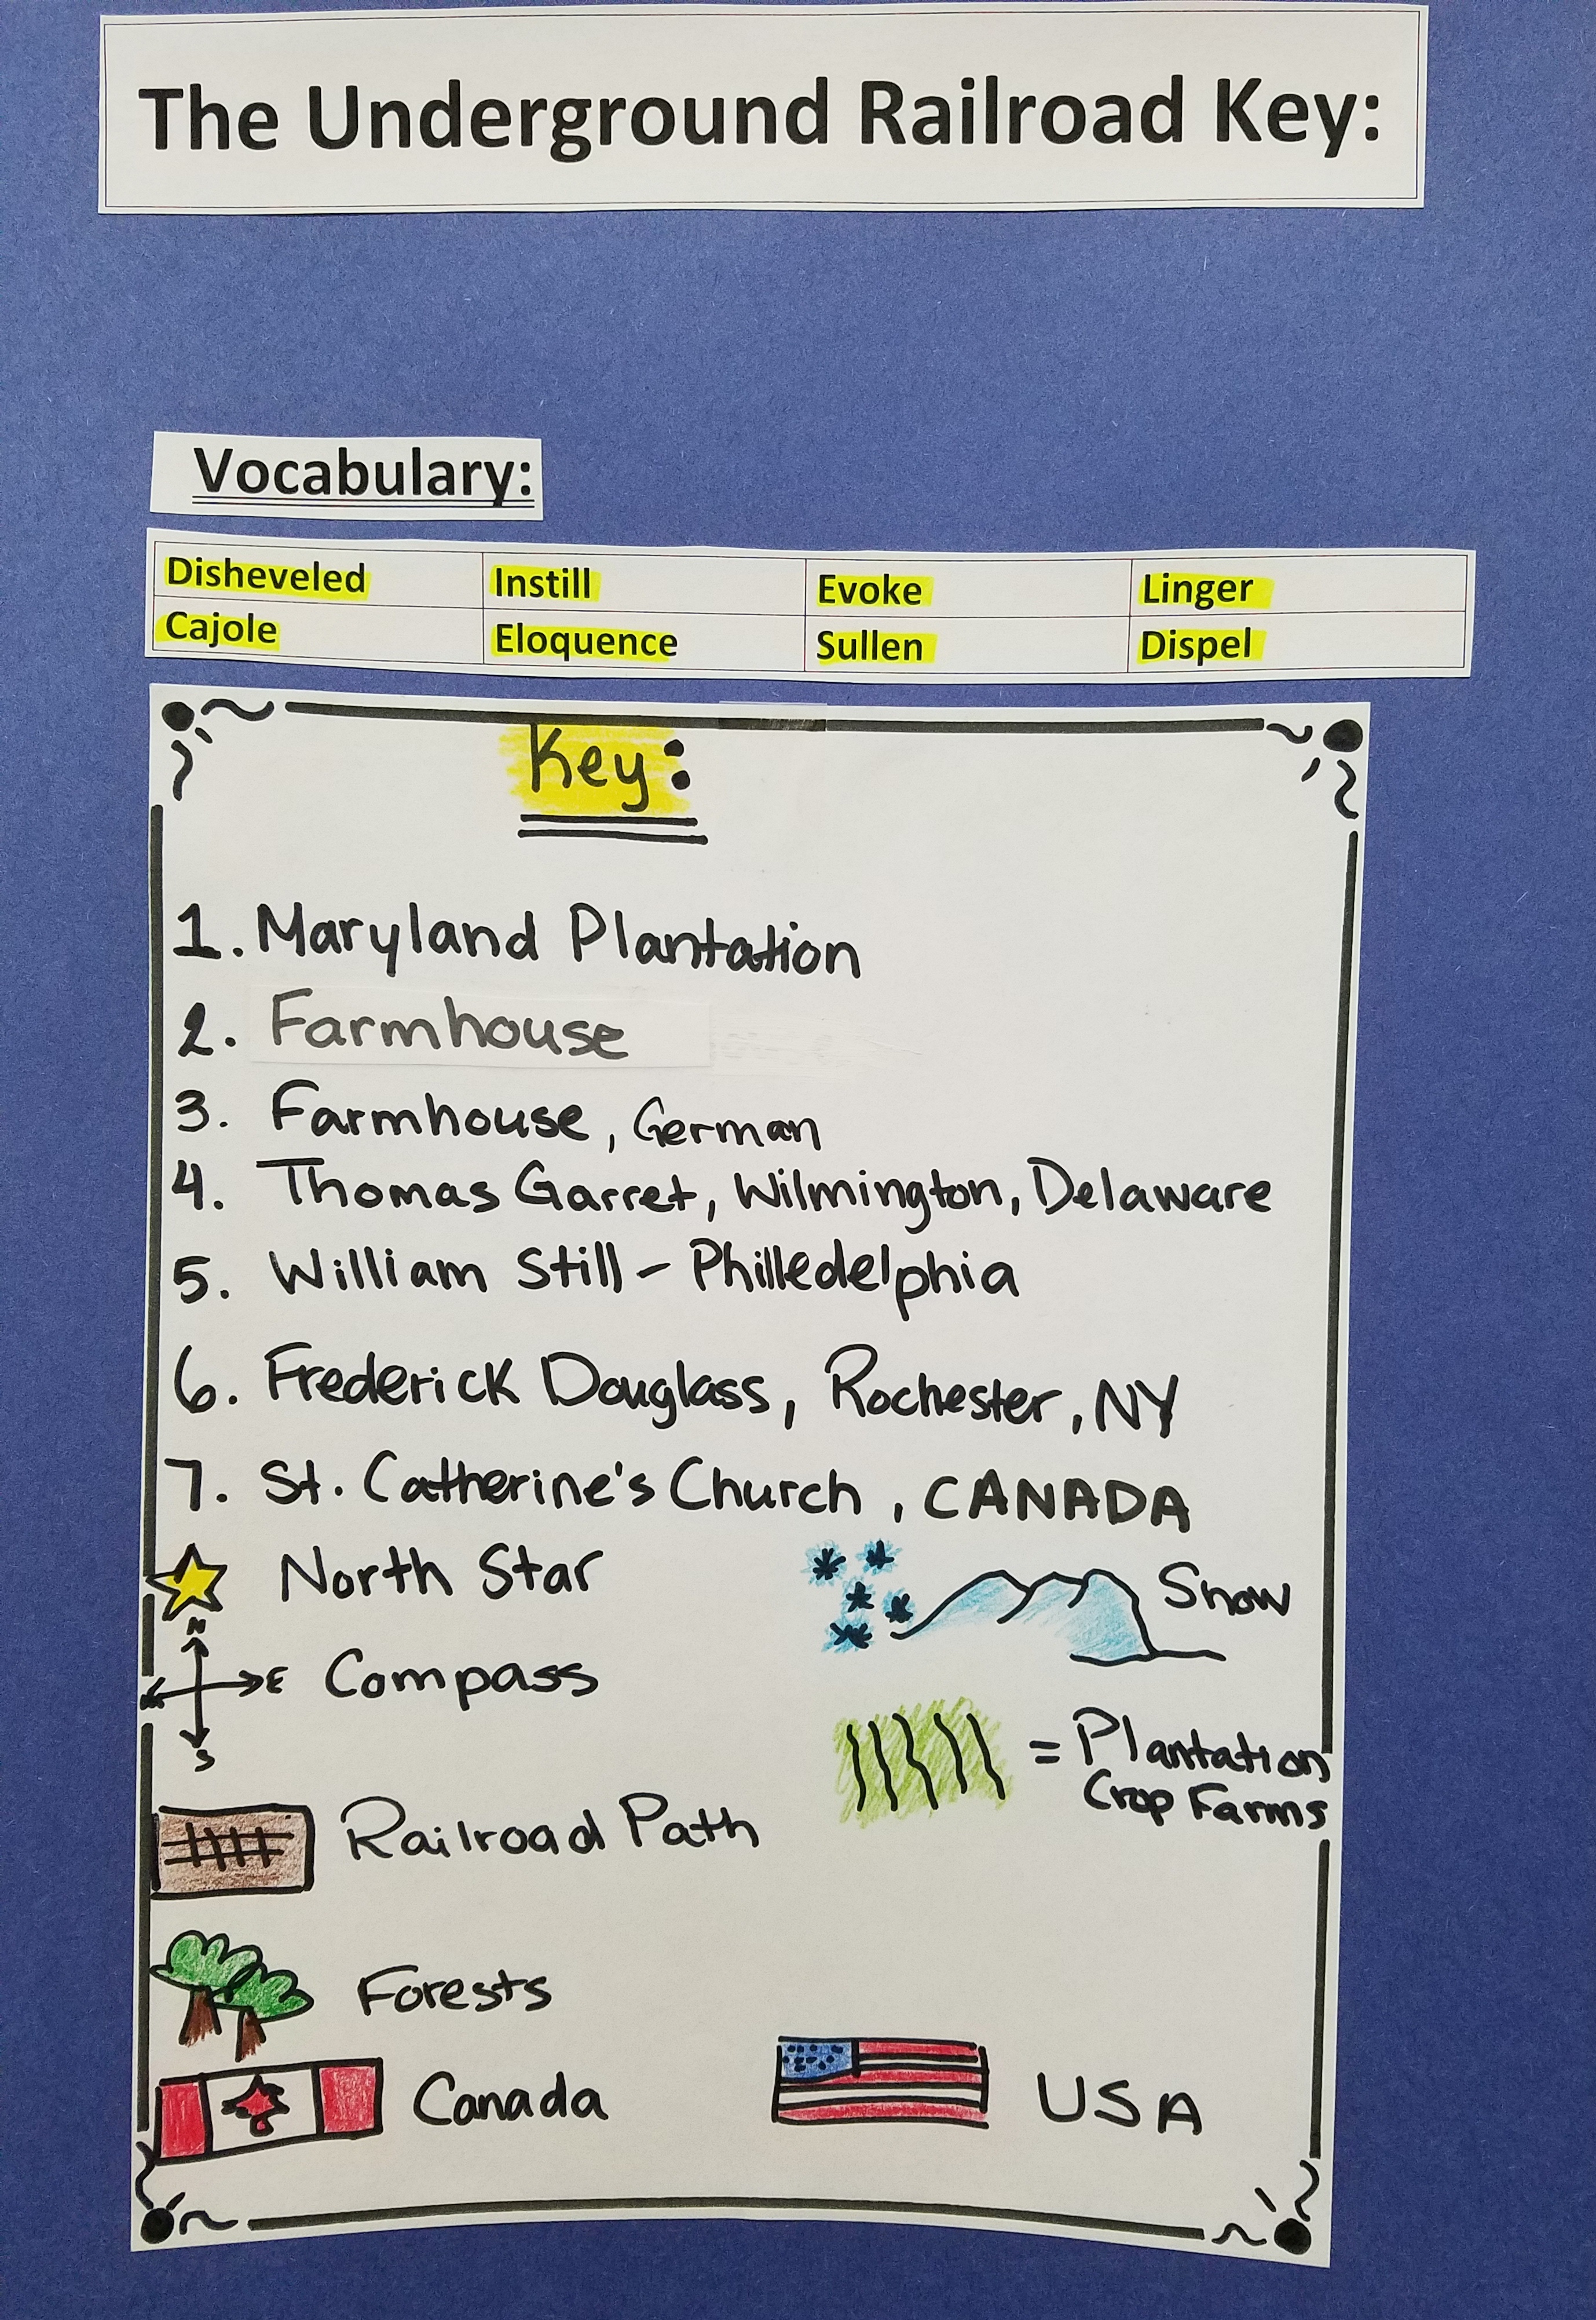 The Underground Railroad Key:
Vocabulary:
Disheveled Instill Evoke Linger
Cajole Eloquence Sullen Dispel
Key:
1. Maryland Plantation
2. Farmhouse
3. Farmhouse, German
4. Thomas Garret, Wilmington, Delaware
5. William Still - Philledelphia
6. Frederick Douglass, Rochester, NY
7. St. Catherine's Church, CANADA
North Star
Snow
N
E Compass
S
= Plantation
Crop Farms
Railroad Path
Forests
Canada
USA